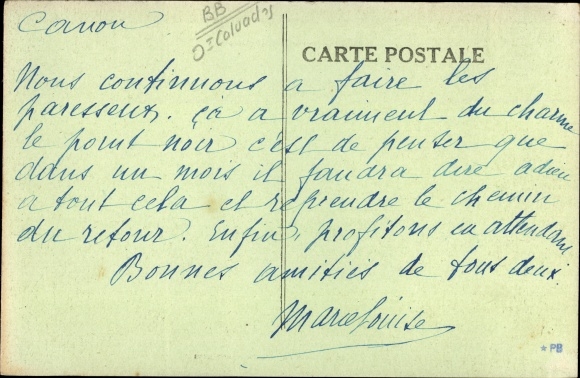 Canon
BB
Ot Calvados
CARTE POSTALE
Nous continuons a faire les
paresseux. ça a vraiment du charme
le point noir c'est de penser que
dans un mois il faudra dire adieu
a tout cela et reprendre le chemin
du retour. Enfin, profitons en attendant
Bonnes amitiés de tous deux.
MarieLouise
*PB